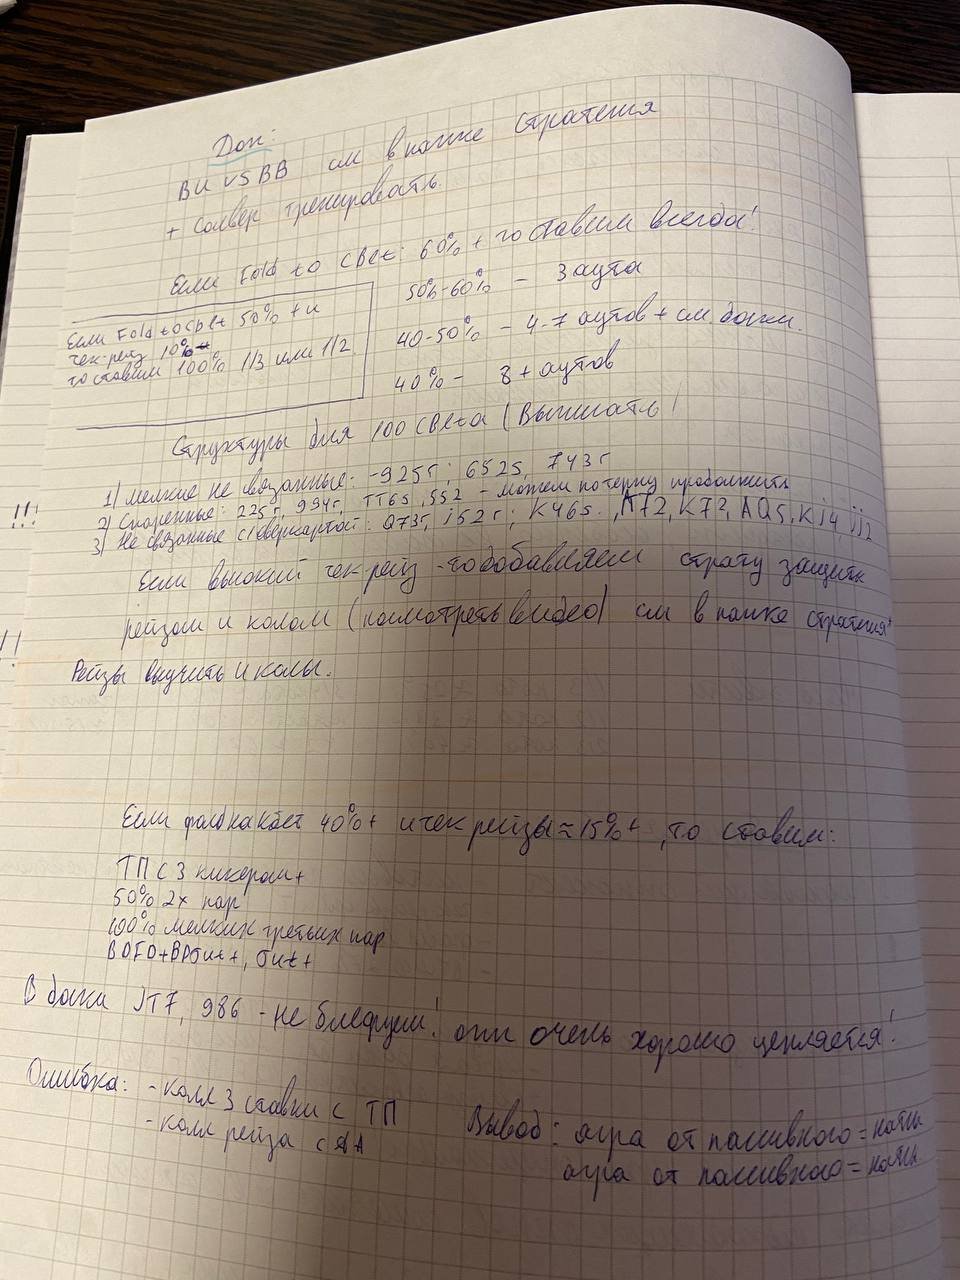 Доп:
BU vs BB см в папке стратегия
+ Солвер тренировать.
Если Fold to CBet: 60% + то ставим всегда!
50%-60% - 3 аута
40-50% - 4-7 аутов + см доски.
40% - 8 + аутов
Если Fold to cbet 50% + и
чек-рейз 10%
то ставим 100% 1/3 или 1/2
Структуры для 100 CBeta (Выписать)
!!!
1) Мелкие не связанные: -925r; 652s, 743r
2) Спаренные: 225r, 994r, TT6s, 552 - можем потерну продолжить
3) Не связанные с оверкартой: Q73r, j52r; K46s., A72, K72, AQ5, Kj4, jj2
Если высокий чек-рейз - то добавляем страту защиты
!!
рейзом и колом (посмотреть видео) см в папке стратегия
Рейзы выучить и колы.
Если фолд на кбет 40%+ и чек рейзы ≈ 15%+, то ставим:
ТП с 3 кикером +
50% 2х пар
100% мелких третьих пар
BDFD+BD
В доски JT7, 986 - не блефуем! опп очень хорошо цепляется!
Ошибка: - колл 3 ставки с ТП
- колл рейза с AA
Вывод: агра от пассивного = натсы
агра от пассивного = натсы